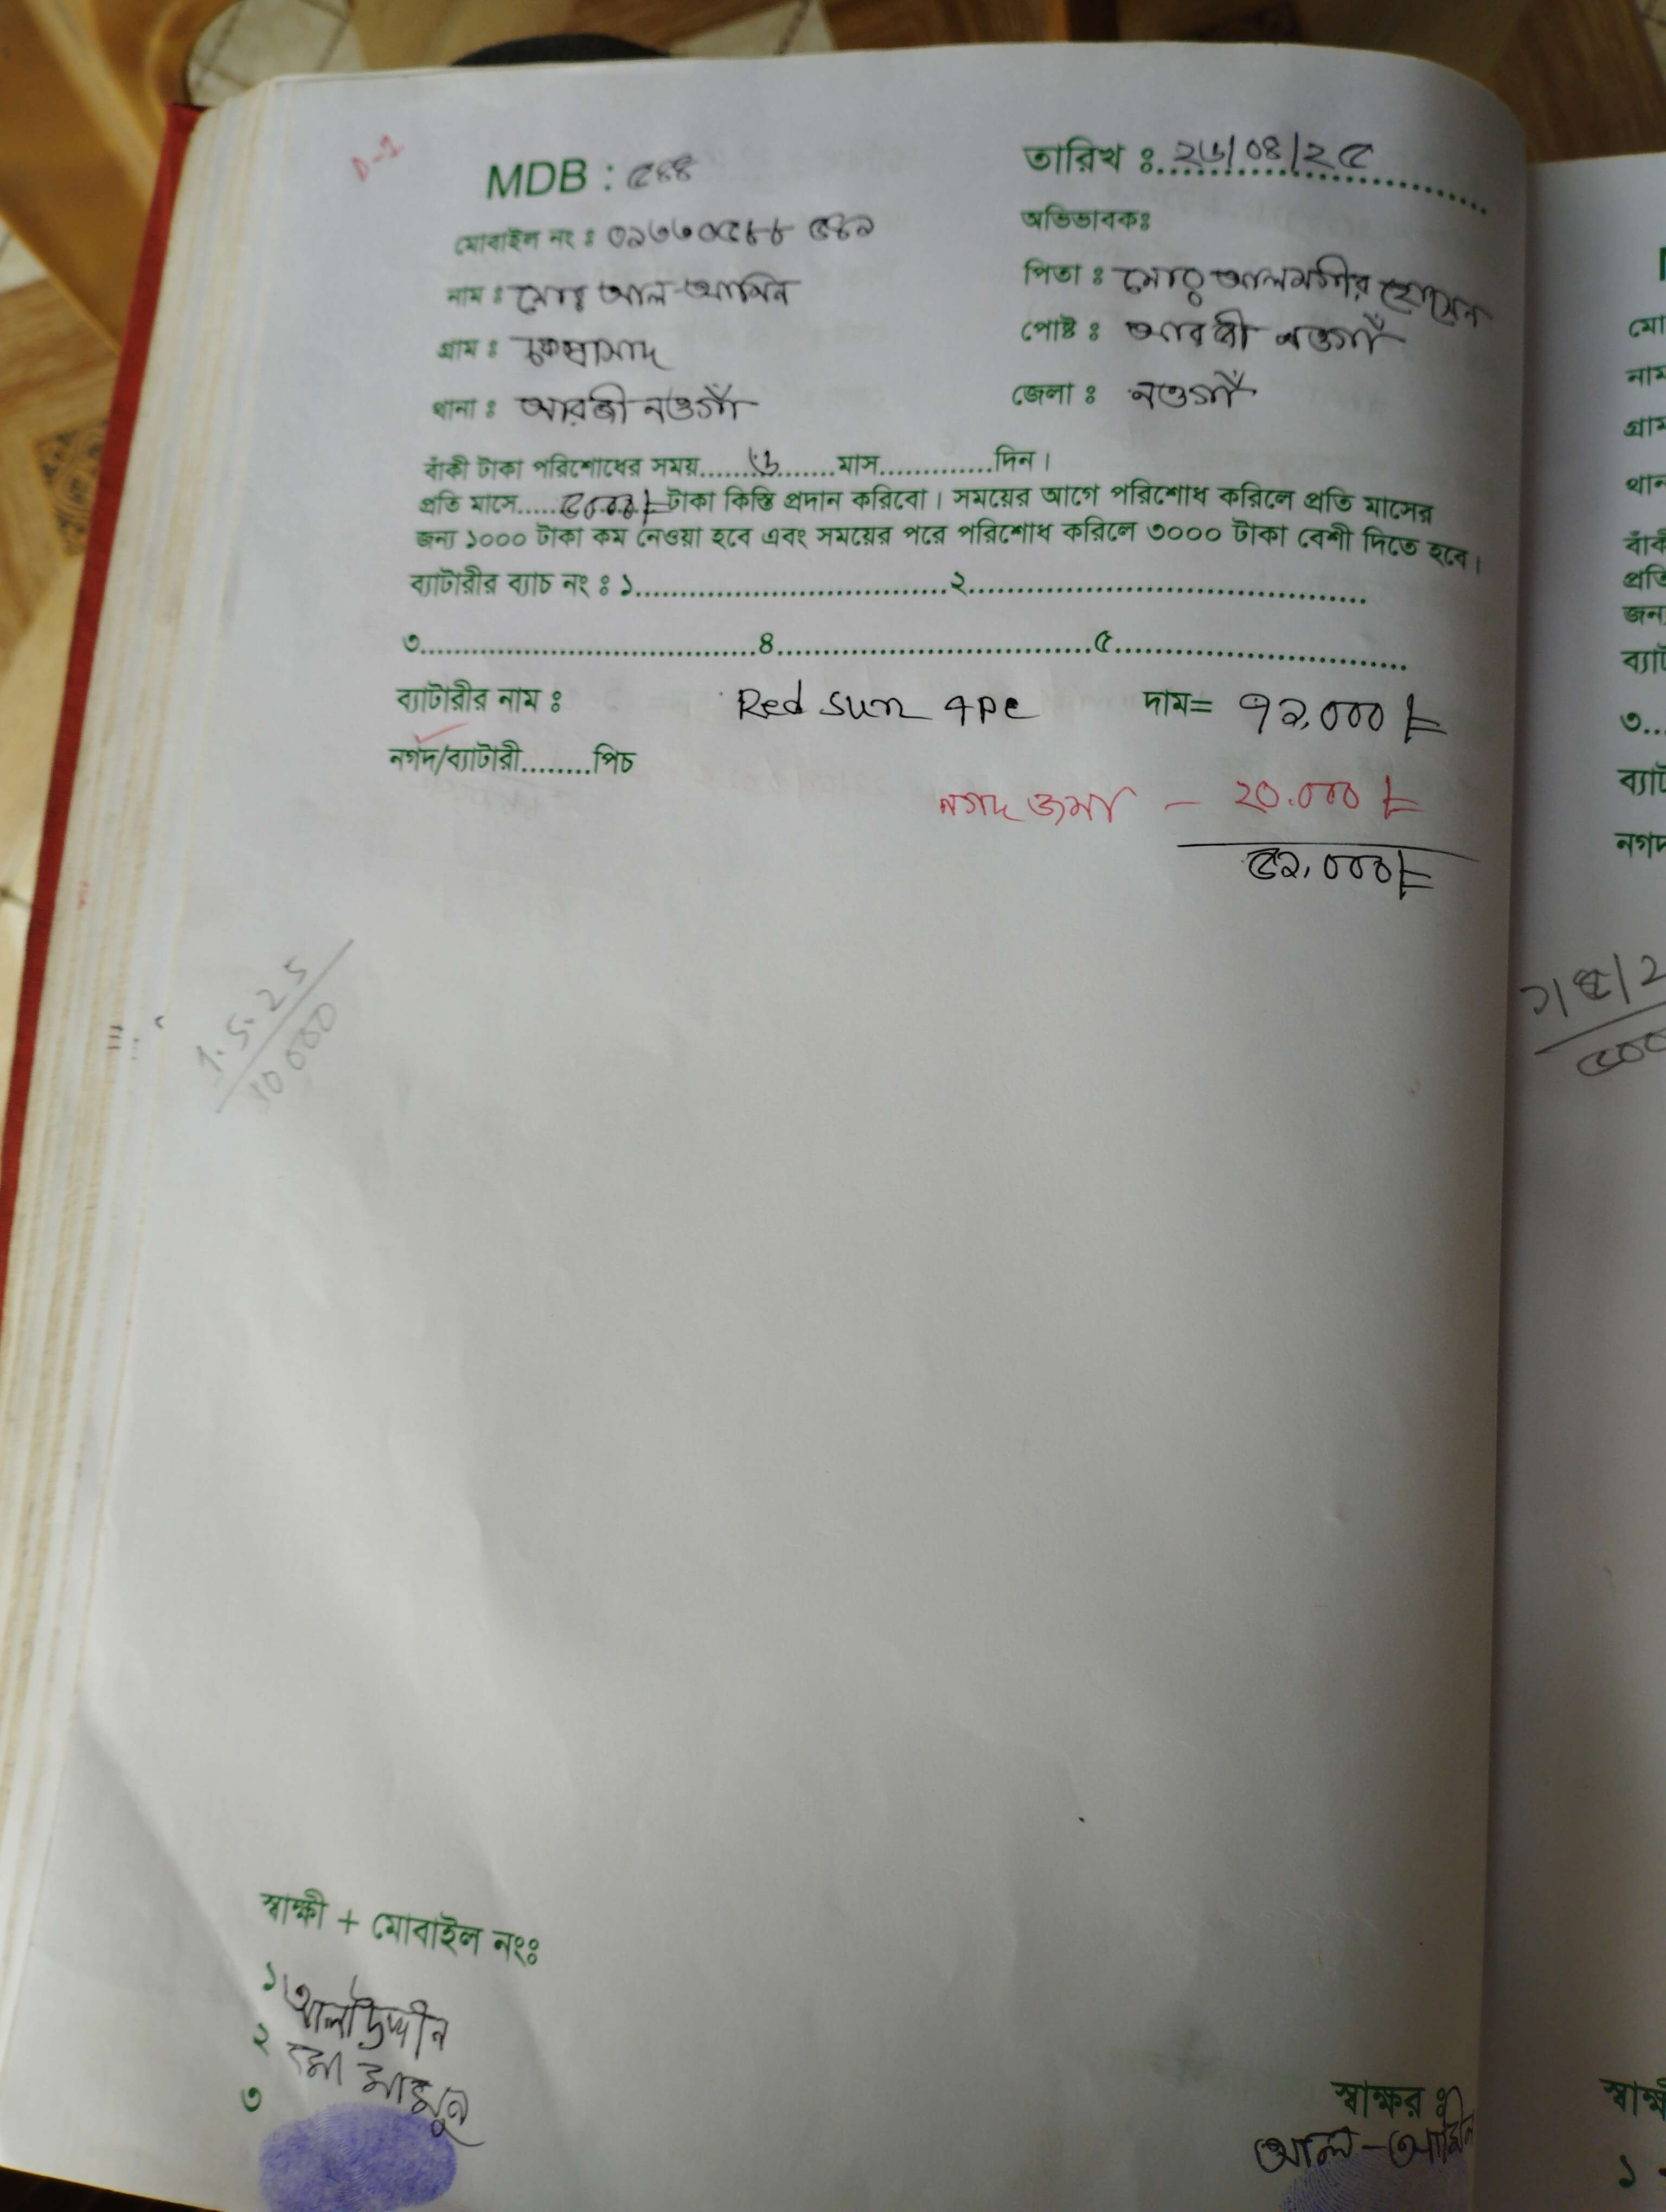 D-2
MDB : ৫৪৪
তারিখ ঃ ২৬/০৪/২৫
মোবাইল নং ঃ
অভিভাবকঃ
নাম ঃ মোঃ আল-আমিন
পিতা ঃ মোঃ আলমগীর হোসেন
গ্রাম ঃ
পোষ্ট ঃ আরজী নওগাঁ
থানা ঃ আরজী নওগাঁ
জেলা ঃ নওগাঁ
বাঁকী টাকা পরিশোধের সময়.......৬.......মাস.............দিন।
প্রতি মাসে.....৫০০০/= টাকা কিস্তি প্রদান করিবো। সময়ের আগে পরিশোধ করিলে প্রতি মাসের
জন্য ১০০০ টাকা কম নেওয়া হবে এবং সময়ের পরে পরিশোধ করিলে ৩০০০ টাকা বেশী দিতে হবে।
ব্যাটারীর ব্যাচ নং ঃ ১................................২........................................
৩...................................8................................৫..............................
ব্যাটারীর নাম ঃ Red Sun 4pc দাম= ৭২,০০০/=
নগদ/ব্যাটারী........পিচ
নগদ জমা - ২০.০০০/=
৫২,০০০/=
1.5.25
10000
স্বাক্ষী + মোবাইল নংঃ
১। আলাউদ্দীন
২ মো মামুন
৩
স্বাক্ষর ঃ
আল-আমিন